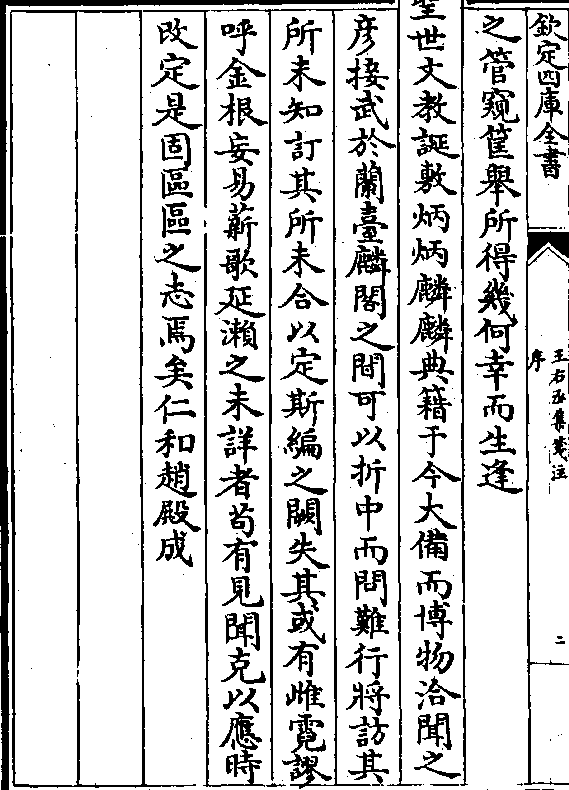 欽定四庫全書
王右丞集箋注
序
二
之管窺筐舉所得幾何幸而生逢
聖世文教誕敷炳炳麟麟典籍于今大備而博物洽聞之
彦接武於蘭臺麟閣之間可以折中而問難行將訪其
所未知訂其所未合以定斯編之闕失其或有雌霓謬
呼金根妄易薪歌延瀨之未詳者苟有見聞克以應時
改定是固區區之志焉矣仁和趙殿成